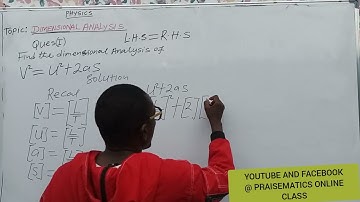 PHYSICS
Topic: DIMENSIONAL ANALYSIS
Ques(I) L.H.S = R.H.S
Find the dimensional Analysis of
V² = U² + 2as
Solution
Recal U² + 2as
[V] = [L/T]
[U] = [L/T]
[a] = [L
[S] = [
YOUTUBE AND FACEBOOK
@ PRAISEMATICS ONLINE
CLASS